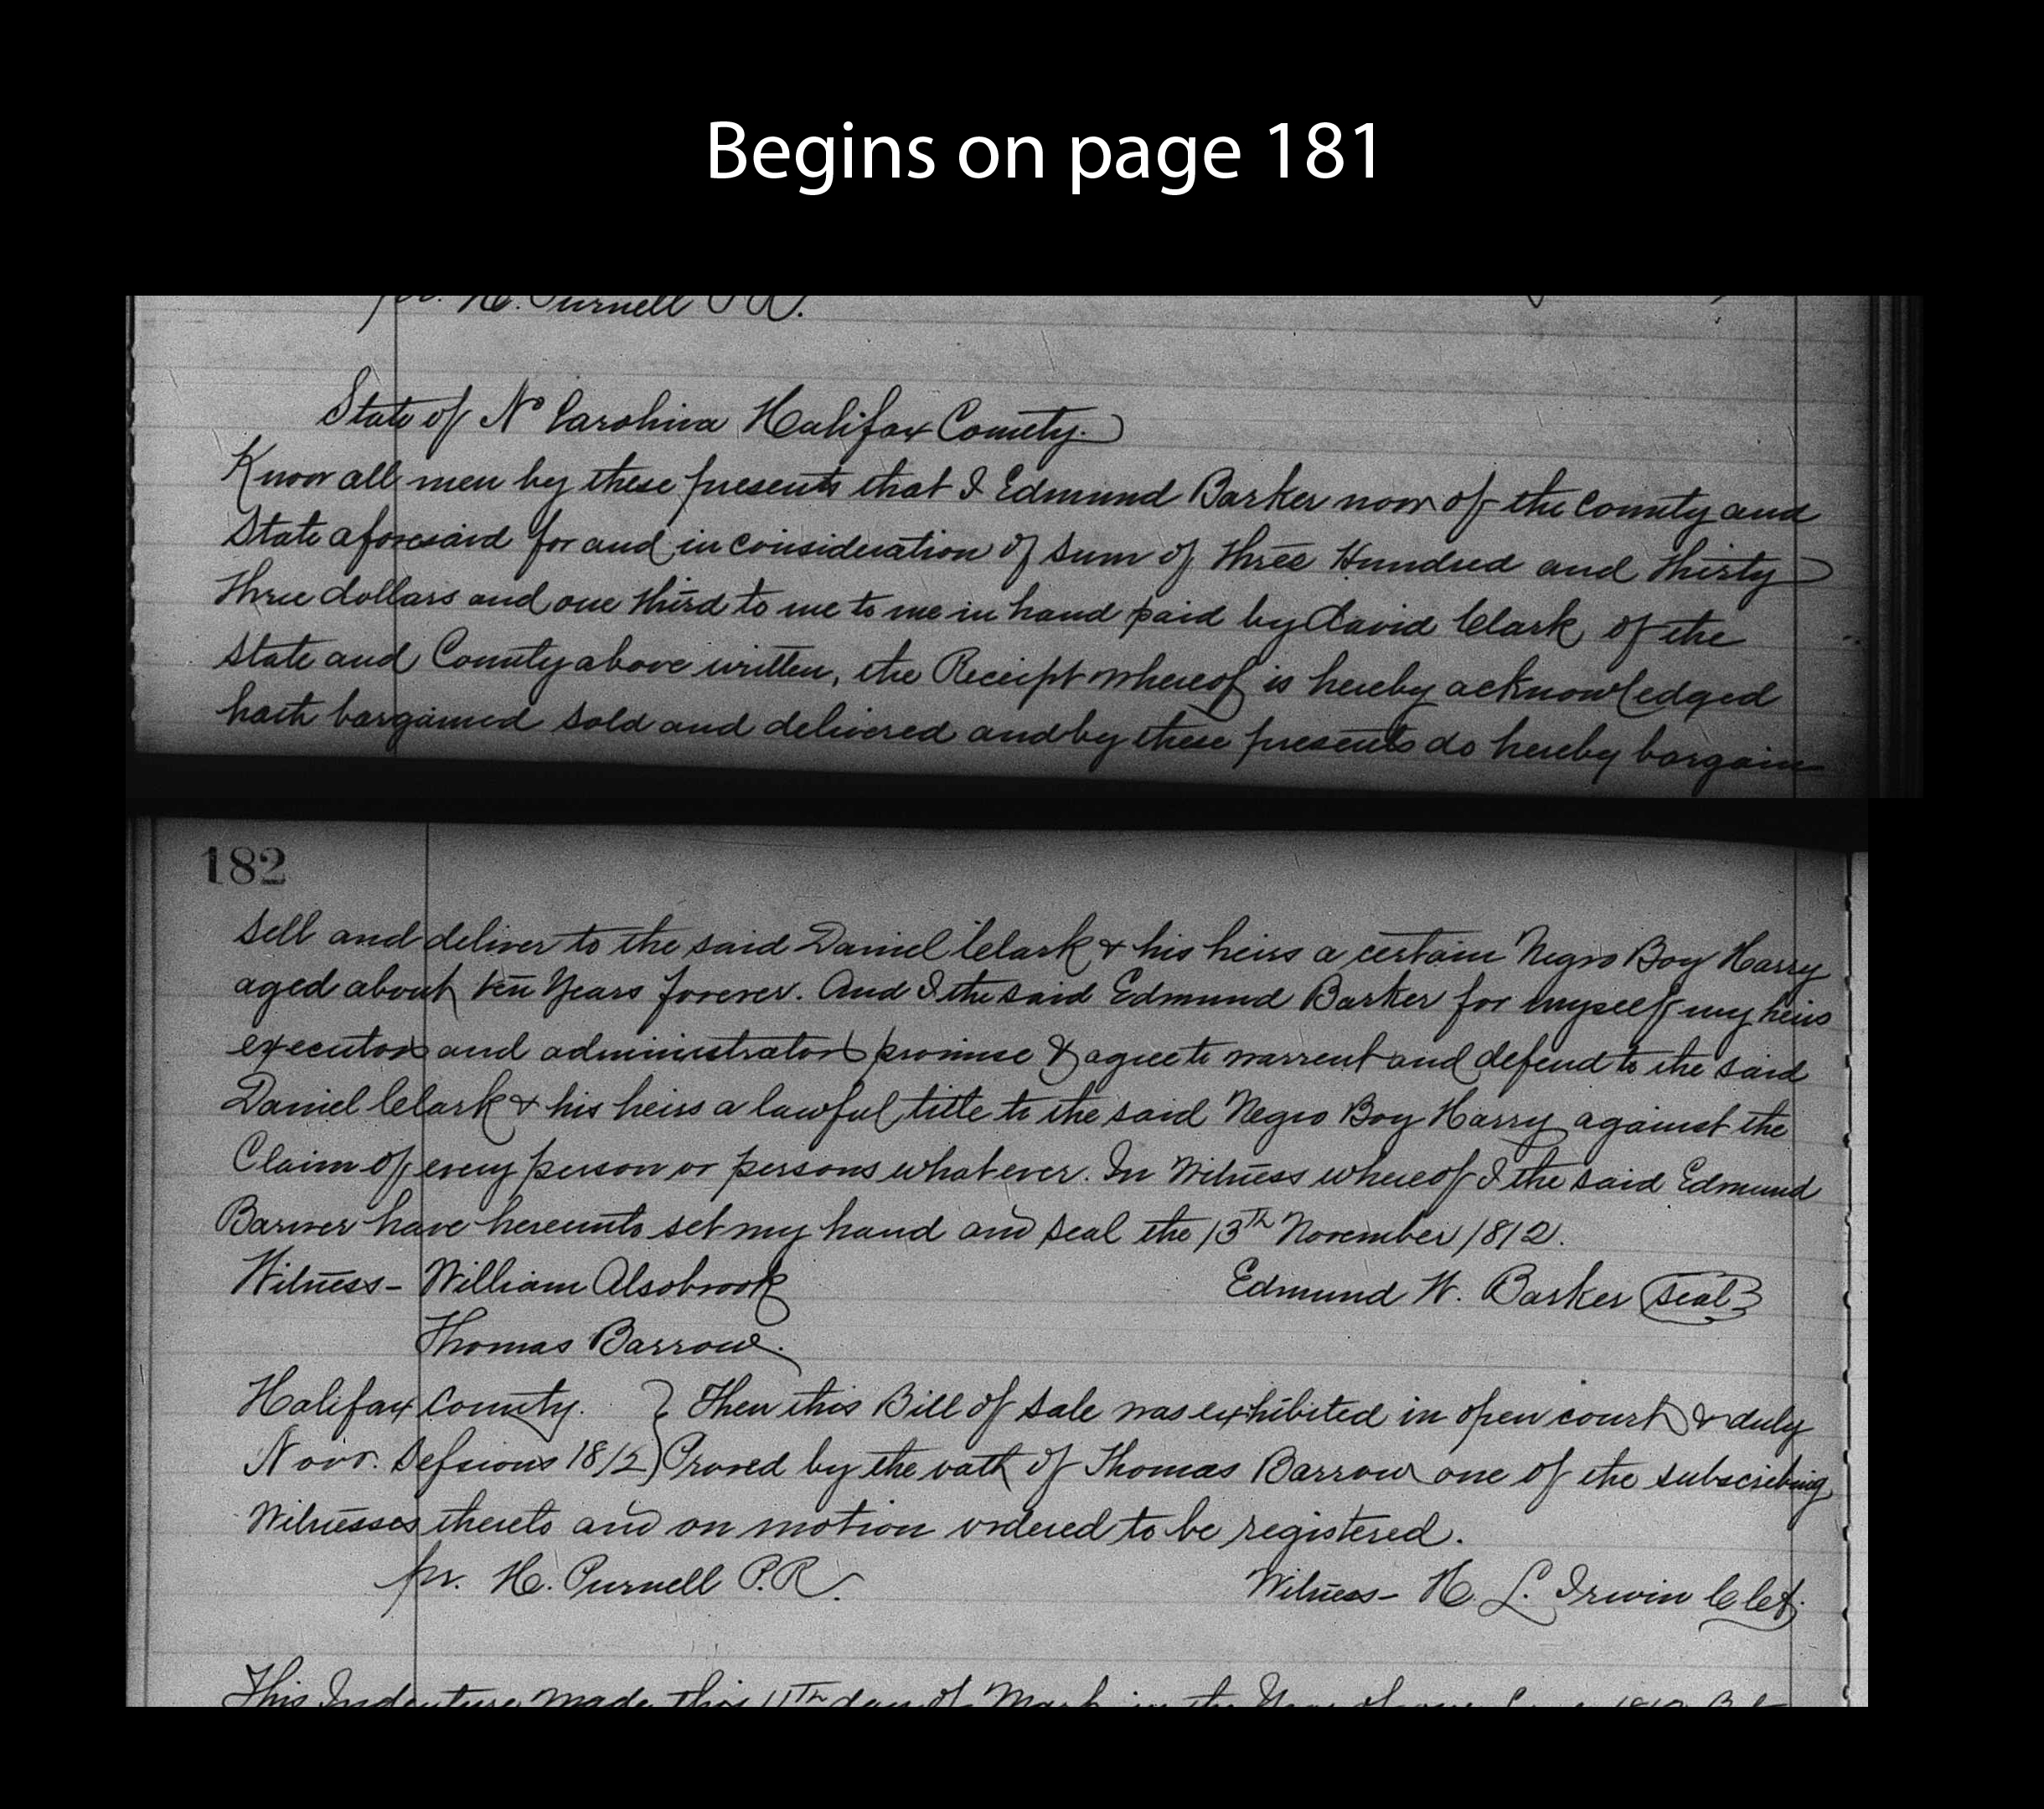 Begins on page 181
pr. H. Purnell P.R.
State of No Carolina Halifax County.
Know all men by these presents that I Edmund Barker now of the County and
State aforesaid for and in consideration of sum of three Hundred and thirty
three dollars and one third to me to me in hand paid by David Clark of the
state and County above written, the Receipt whereof is hereby acknowledged
hath bargained sold and delivered and by these presents do hereby bargain
182
sell and deliver to the said Daniel Clark & his heirs a certain Negro Boy Harry
aged about ten Years forever. And I the said Edmund Barker for myself my heirs
executors and administrators promise & agree to warrent and defend to the said
Daniel Clark & his heirs a lawful title to the said Negro Boy Harry against the
Claim of every person or persons whatever. In Witness whereof I the said Edmund
Barker have hereunto set my hand and seal the 13th November 1812.
Witness - William Alsobrook Edmund W. Barker seal
Thomas Barrow.
Halifax County. } Then this Bill of sale was exhibited in open court & duly
Novr. Sessions 1812 } Proved by the oath of Thomas Barrow one of the subscribing
Witnesses thereto and on motion ordered to be registered.
pr. H. Purnell P.R. Witness - H. L. Irwin Clct.
This Indenture made this 11th day of in the Year of our 1812